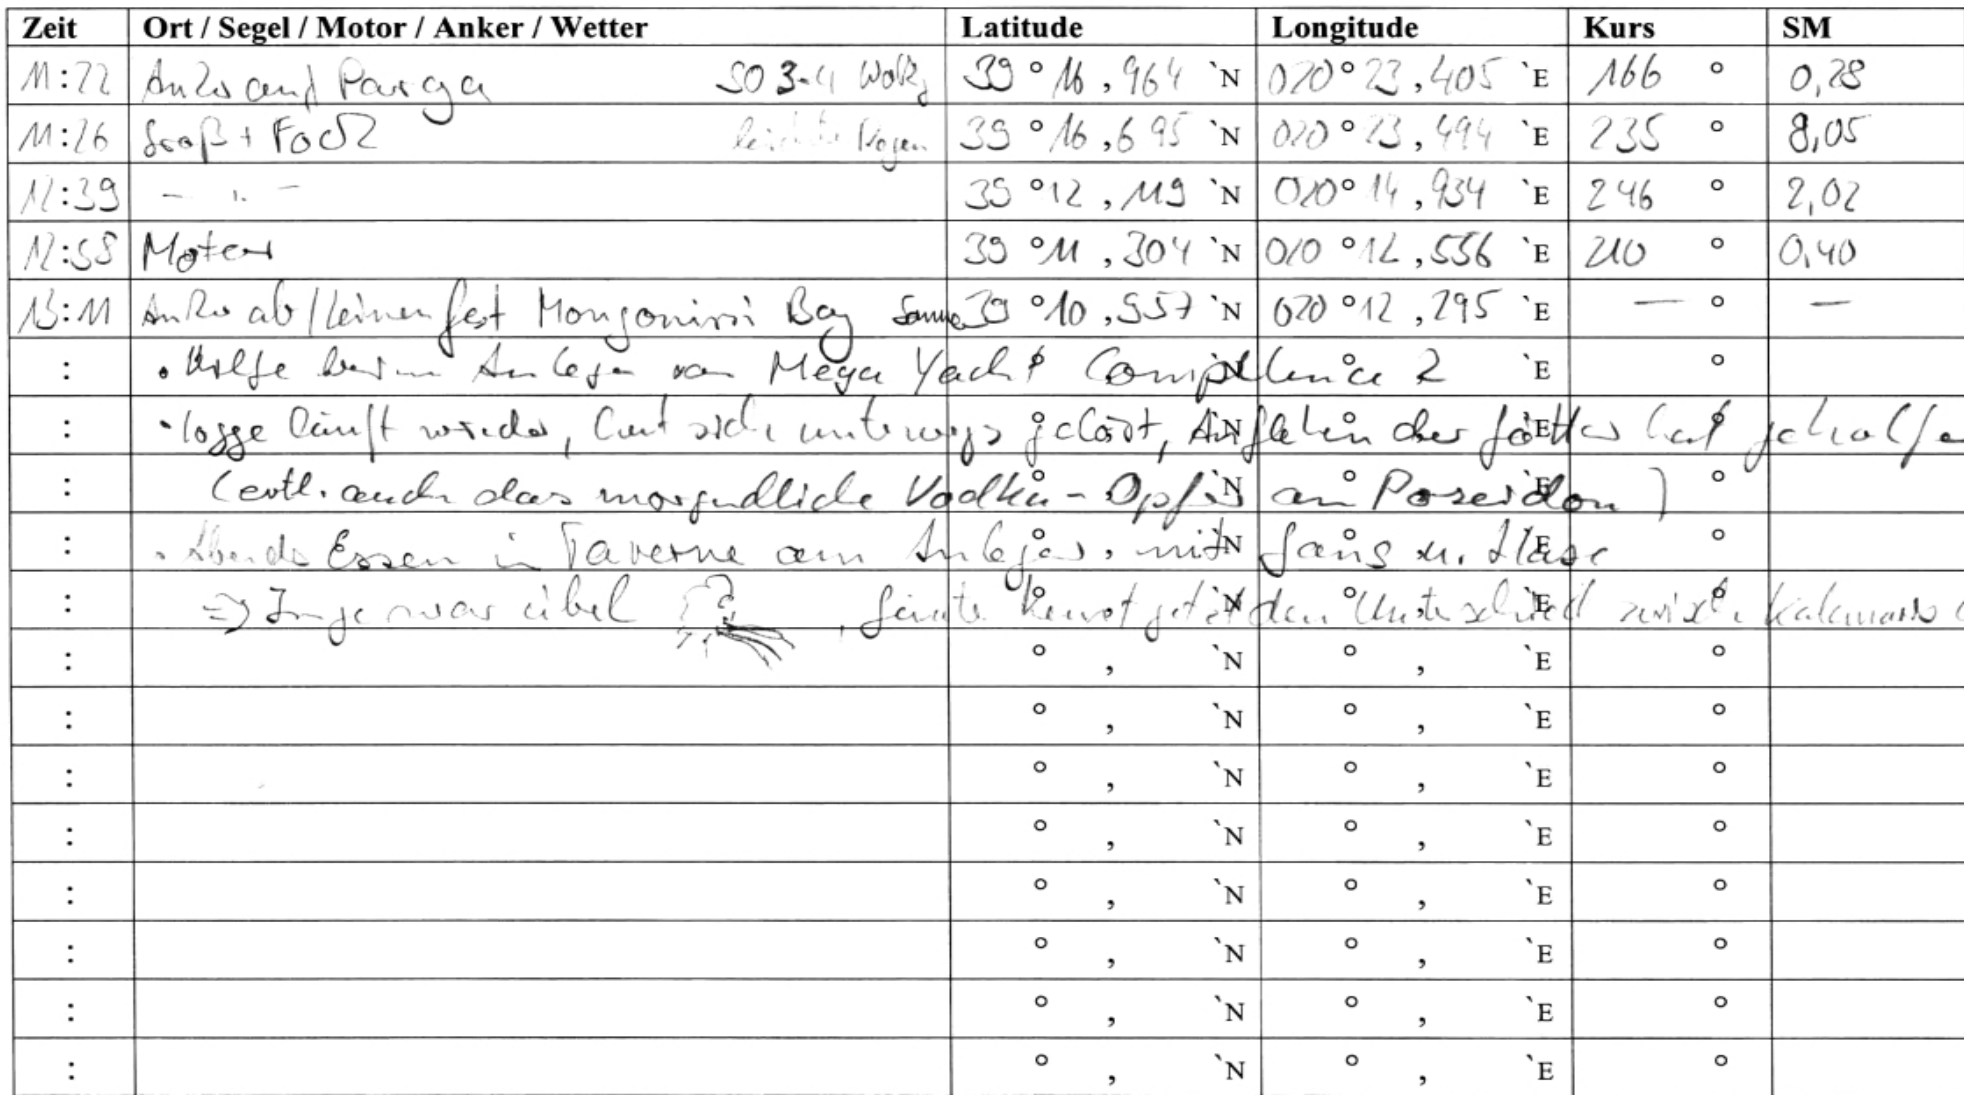 Zeit Ort / Segel / Motor / Anker / Wetter Latitude Longitude Kurs SM
11:22 Anker auf Parga SO 3-4 Wolkig 39 ° 16 , 964 `N 020 ° 23 , 405 `E 166 ° 0,28
11:26 Groß + Fock leichter Regen 39 ° 16 , 695 `N 020 ° 23 , 494 `E 235 ° 8,05
12:39 - " - 39 ° 12 , 119 `N 020 ° 14 , 934 `E 246 ° 2,02
12:58 Motor 39 ° 11 , 304 `N 020 ° 12 , 556 `E 210 ° 0,40
13:11 Anker ab / Leinen fest Mongonissi Bay Sonne 39 ° 10 , 957 `N 020 ° 12 , 295 `E — ° —
: • Hilfe beim Anlegen von Mega Yacht 2 `N ° `E °
: • Logge läuft wieder, hat sich unterwegs gelöst, Anflehen der Götter hat geholfen
: (evtl. auch das morgendliche Vodka - Opfer an Poseidon)
: • Abends Essen in Taverne am Anleger, mit
: => Inge war übel , den Unterschied zwischen Kalmaris
: ° , `N ° , `E °
: ° , `N ° , `E °
: ° , `N ° , `E °
: ° , `N ° , `E °
: ° , `N ° , `E °
: ° , `N ° , `E °
: ° , `N ° , `E °
: ° , `N ° , `E °